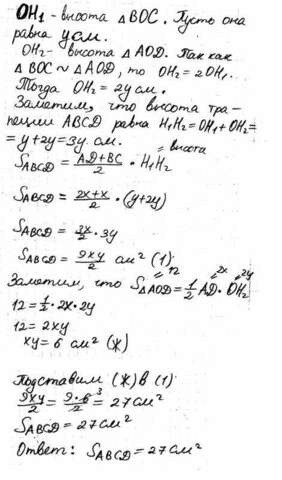 OH₁ - высота △BOC. Пусть она
равна y см.
OH₂ - высота △AOD. Так как
△BOC ~ △AOD, то OH₂ = 2OH₁.
Тогда OH₂ = 2y см.
Заметим, что высота тра-
пеции ABCD равна H₁H₂ = OH₁ + OH₂ =
= y + 2y = 3y см.
= высота
S_ABCD = (AD + BC)/2 · H₁H₂
S_ABCD = (2x + x)/2 · (y + 2y)
S_ABCD = 3x/2 · 3y
S_ABCD = 9xy/2 см² (1).
= 12 = 2x = 2y
Заметим, что S_△AOD = 1/2 AD · OH₂
12 = 1/2 · 2x · 2y
12 = 2xy
xy = 6 см² (Ж)
Подставим (Ж) в (1)
9xy/2 = 9·6³/2 = 27 см²
S_ABCD = 27 см²
Ответ: S_ABCD = 27 см²